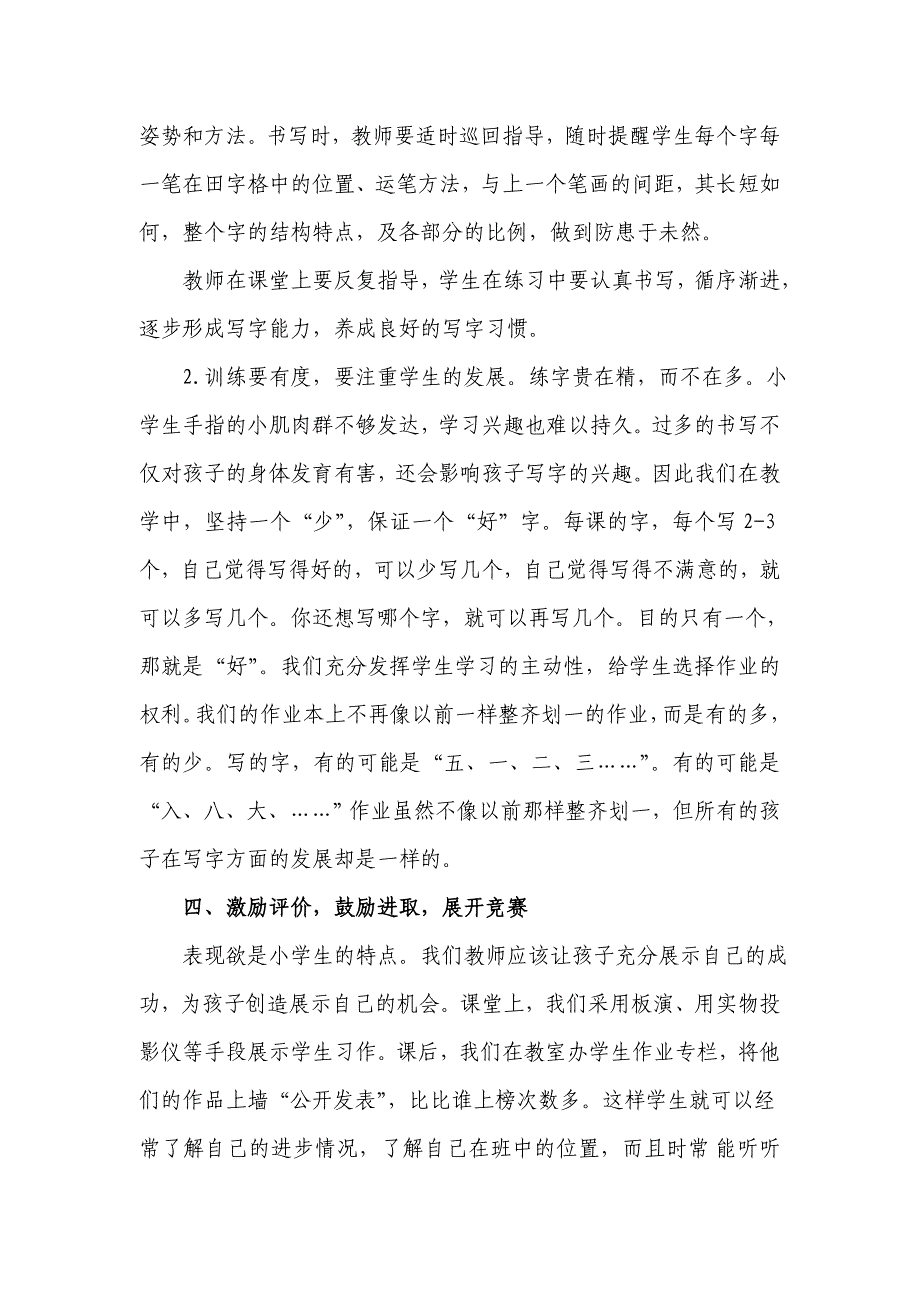 姿势和方法。书写时，教师要适时巡回指导，随时提醒学生每个字每
一笔在田字格中的位置、运笔方法，与上一个笔画的间距，其长短如
何，整个字的结构特点，及各部分的比例，做到防患于未然。
教师在课堂上要反复指导，学生在练习中要认真书写，循序渐进，
逐步形成写字能力，养成良好的写字习惯。
2.训练要有度，要注重学生的发展。练字贵在精，而不在多。小
学生手指的小肌肉群不够发达，学习兴趣也难以持久。过多的书写不
仅对孩子的身体发育有害，还会影响孩子写字的兴趣。因此我们在教
学中，坚持一个“少”，保证一个“好”字。每课的字，每个写 2-3
个，自己觉得写得好的，可以少写几个，自己觉得写得不满意的，就
可以多写几个。你还想写哪个字，就可以再写几个。目的只有一个，
那就是“好”。我们充分发挥学生学习的主动性，给学生选择作业的
权利。我们的作业本上不再像以前一样整齐划一的作业，而是有的多，
有的少。写的字，有的可能是“五、一、二、三……”。有的可能是
“入、八、大、……”作业虽然不像以前那样整齐划一，但所有的孩
子在写字方面的发展却是一样的。
四、激励评价，鼓励进取，展开竞赛
表现欲是小学生的特点。我们教师应该让孩子充分展示自己的成
功，为孩子创造展示自己的机会。课堂上，我们采用板演、用实物投
影仪等手段展示学生习作。课后，我们在教室办学生作业专栏，将他
们的作品上墙“公开发表”，比比谁上榜次数多。这样学生就可以经
常了解自己的进步情况，了解自己在班中的位置，而且时常 能听听